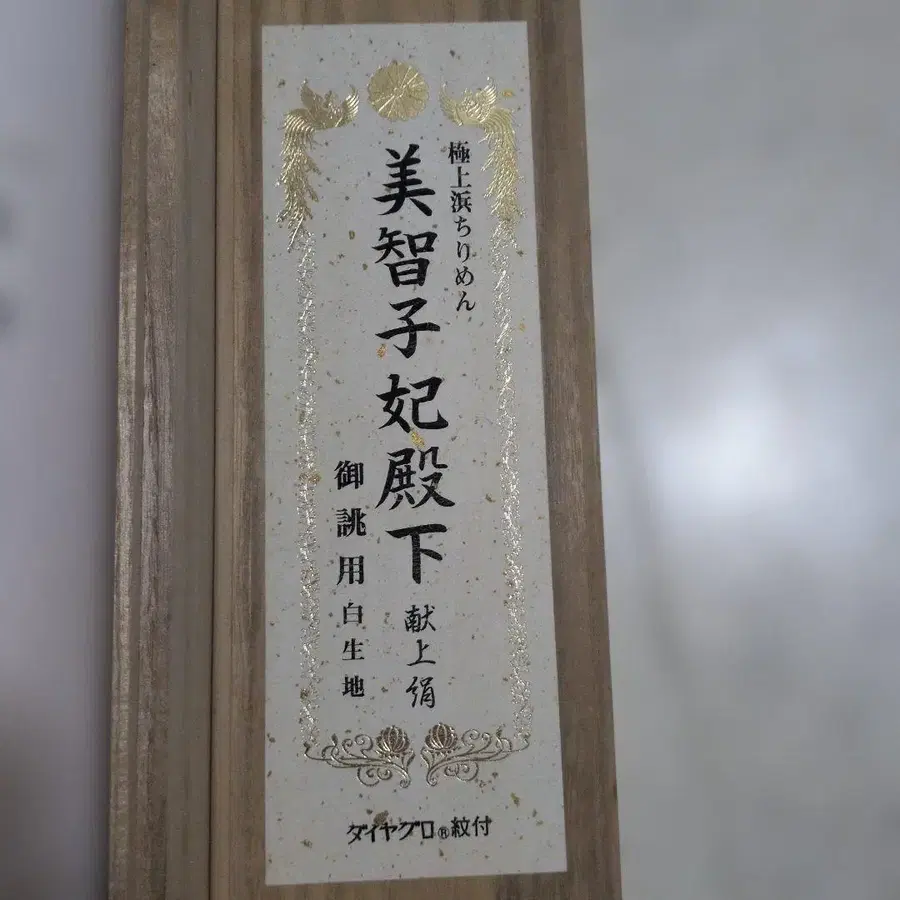 極上浜ちりめん
美智子妃殿下 献上絹
御誂用白生地
ダイヤグロ®紋付